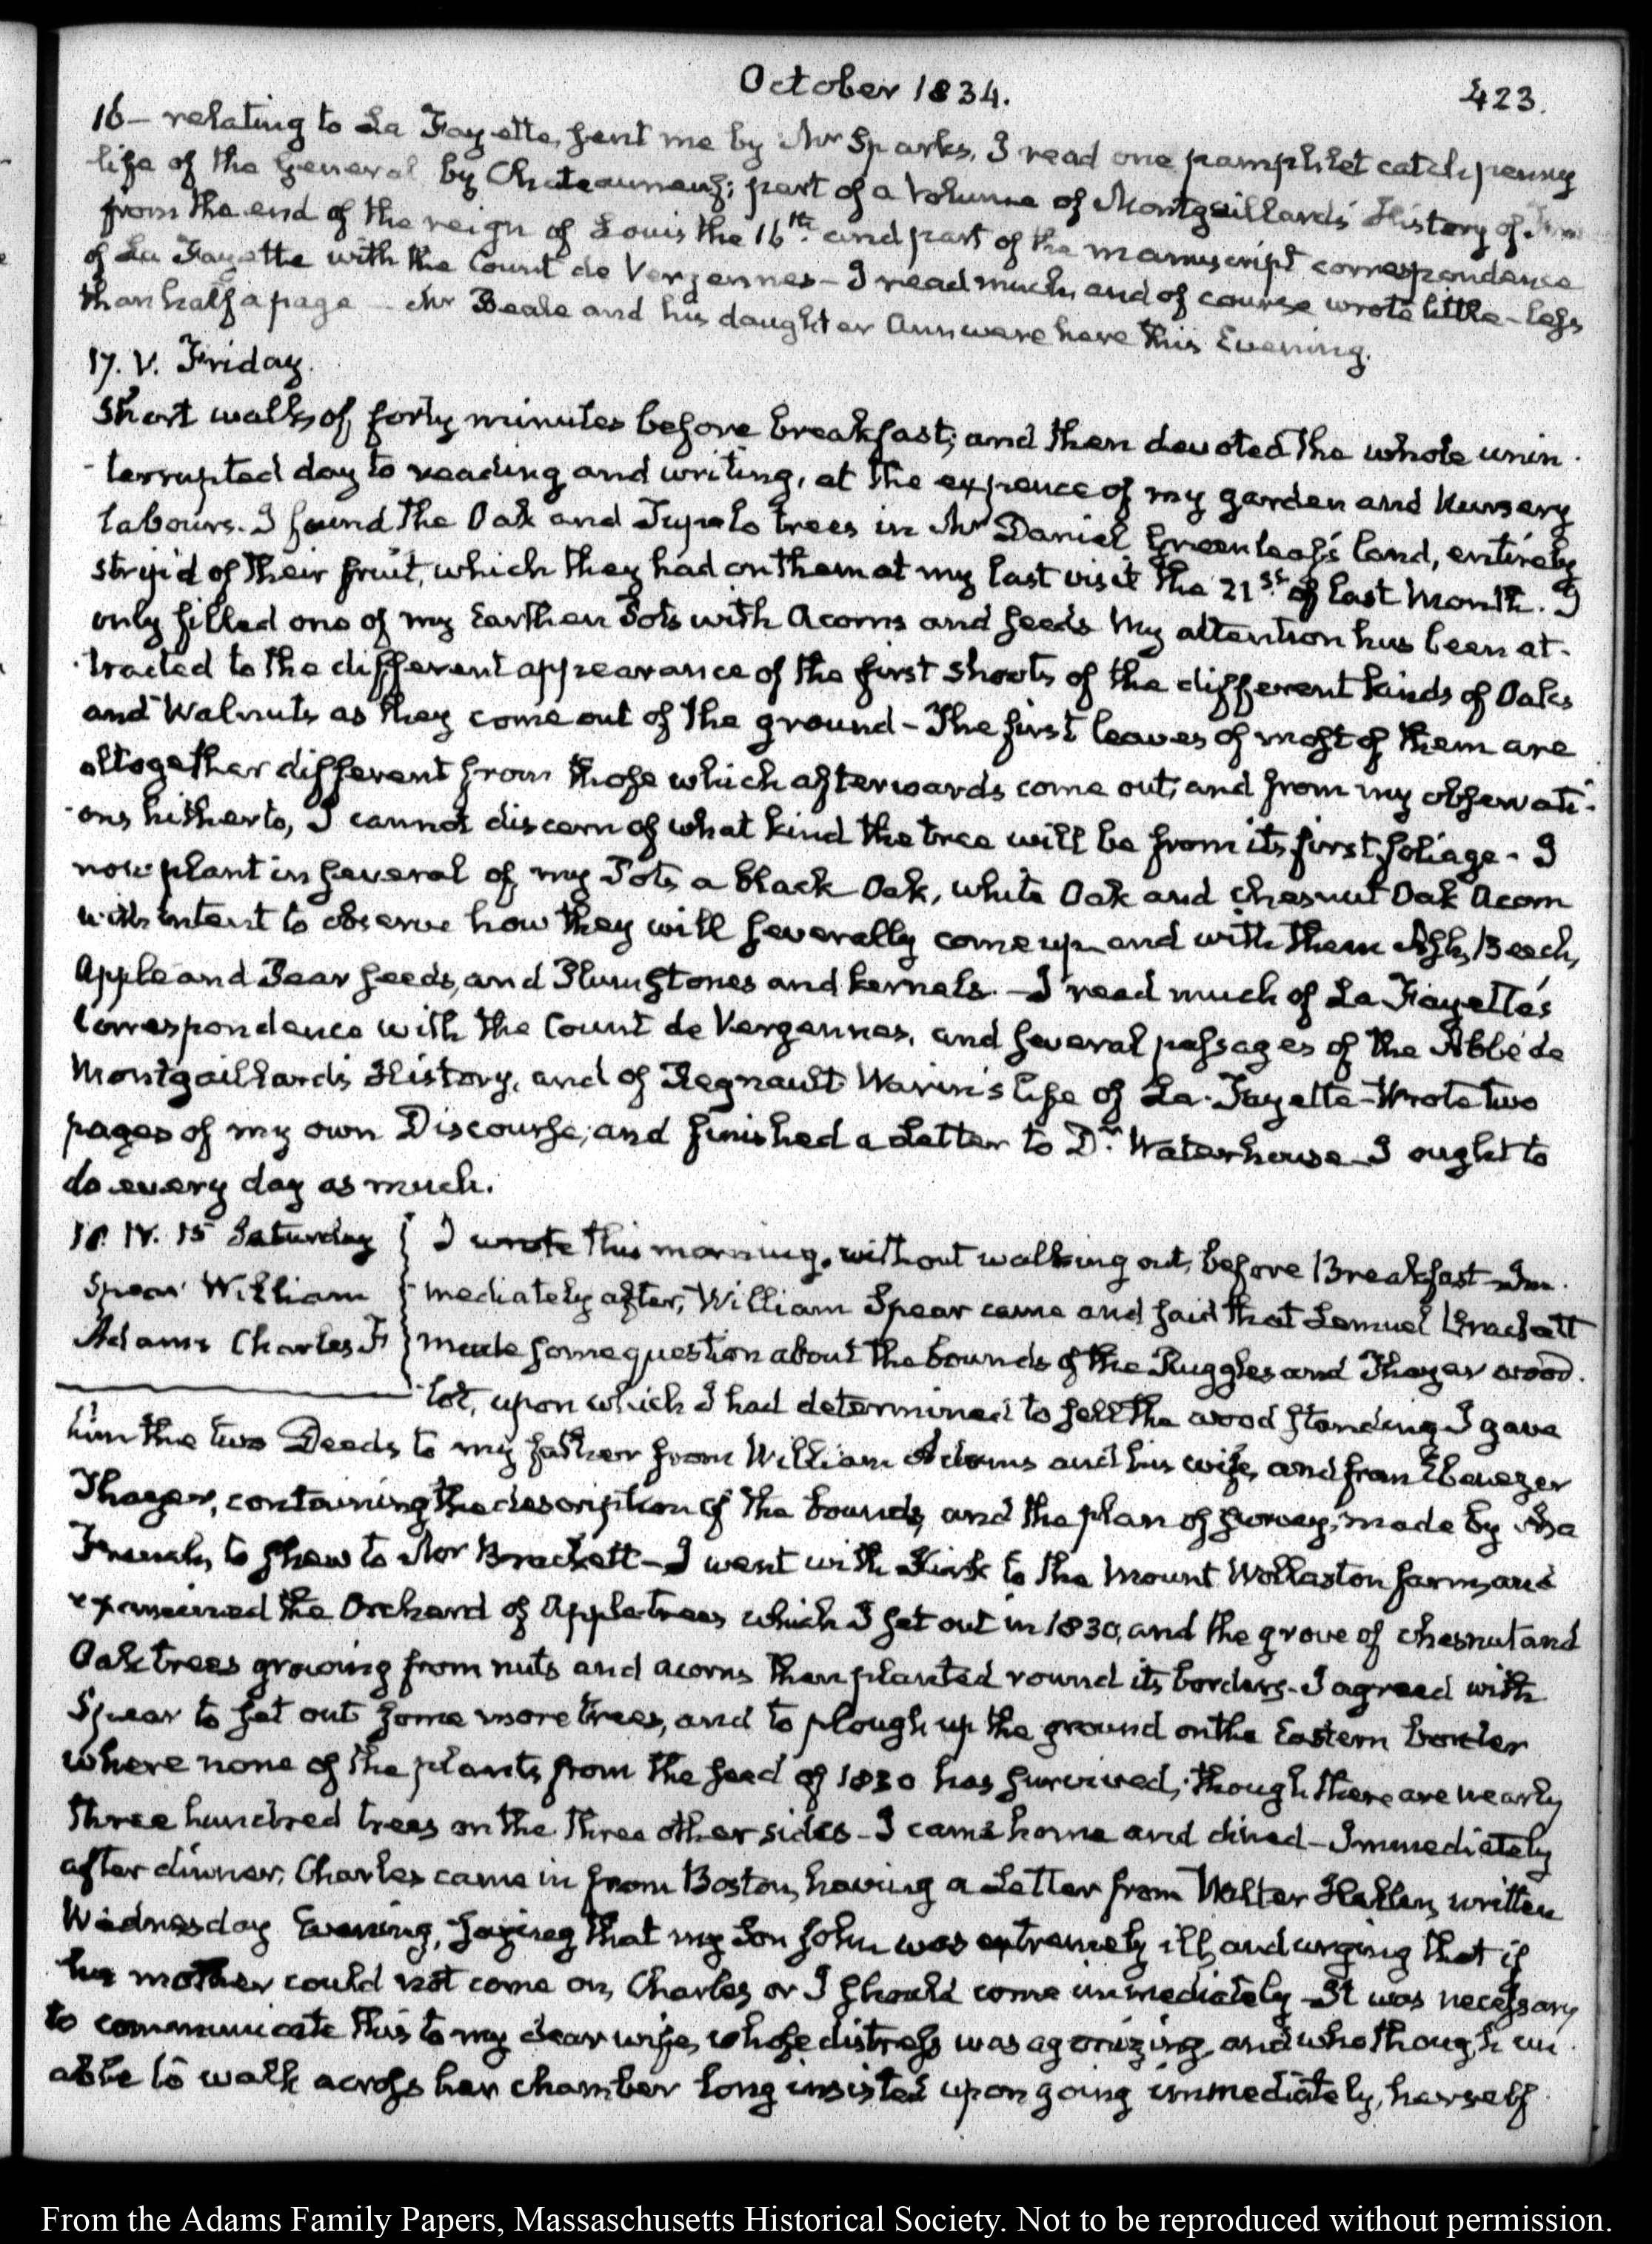 October 1834.
423.
16 — relating to La Fayette, sent me by Mr Sparks. I read one pamphlet catchpenny
life of the General by Chateauneuf; part of a Volume of Montgaillard's History of
from the end of the reign of Louis the 16th and part of the manuscript correspondence
of La Fayette with the Count de Vergennes — I read much, and of course wrote little — less
than half a page — Mr Beale and his daughter Ann were here this Evening.
17. V. Friday.
Short walk, of forty minutes before breakfast; and then devoted the whole unin-
-terrupted day to reading and writing, at the expence of my garden and Nursery
labours. I found the Oak and Tupelo trees in Mr Daniel Greenleaf's land, entirely
strip'd of their fruit, which they had on them at my last visit the 21st of last Month. I
only filled one of my Earthen Pots with Acorns and seeds My attention has been at-
-tracted to the different appearance of the first shoots of the different kinds of Oaks
and Walnuts as they come out of the ground — The first leaves of most of them are
altogether different from those which afterwards come out; and from my observati-
-ons hitherto, I cannot discern of what kind the tree will be from its first foliage — I
now plant in several of my Pots, a black Oak, white Oak and chesnut Oak Acorn
with intent to observe how they will severally come up and with them Ash, Beech,
Apple and Pear seeds, and Plum stones and kernels. — I read much of La Fayette's
Correspondence with the Count de Vergennes, and several passages of the Abbé de
Montgaillard's History, and of Regnault Warin's life of La Fayette — Wrote two
pages of my own Discourse; and finished a Letter to Dr. Waterhouse — I ought to
do every day as much.
18. IV. 15 Saturday
Spear William
Adams Charles F
I wrote this morning, without walking out, before Breakfast — Im-
mediately after, William Spear came and said that Lemuel Brackett
made some question about the bounds of the Ruggles and Thayer wood-
lot, upon which I had determined to sell the wood standing I gave
him the two Deeds to my father from William Adams and his wife, and from Ebenezer
Thayer, containing the description of the bounds, and the plan of survey, made by Asa
French, to shew to Mr Brackett — I went with Kirk to the Mount Wollaston farm, and
examined the Orchard of Apple trees which I set out in 1830, and the grove of chesnut and
Oak trees growing from nuts and acorns then planted round its borders — I agreed with
Spear to set out some more trees, and to plough up the ground on the Eastern border
where none of the plants from the seed of 1830 has survived; though there are nearly
three hundred trees on the three other sides — I came home and dined — Immediately
after dinner, Charles came in from Boston, having a Letter from Walter Hellen, written
Wednesday Evening, saying that my Son John was extremely ill, and urging that if
his mother could not come on, Charles, or I should come immediately — It was necessary
to communicate this to my dear wife, whose distress was agonizing, and who though un-
able to walk across her chamber long insisted upon going immediately, herself
From the Adams Family Papers, Massaschusetts Historical Society. Not to be reproduced without permission.